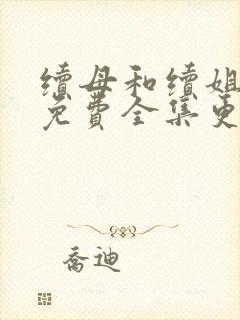 續母和續姐
免費全集更
喬迪